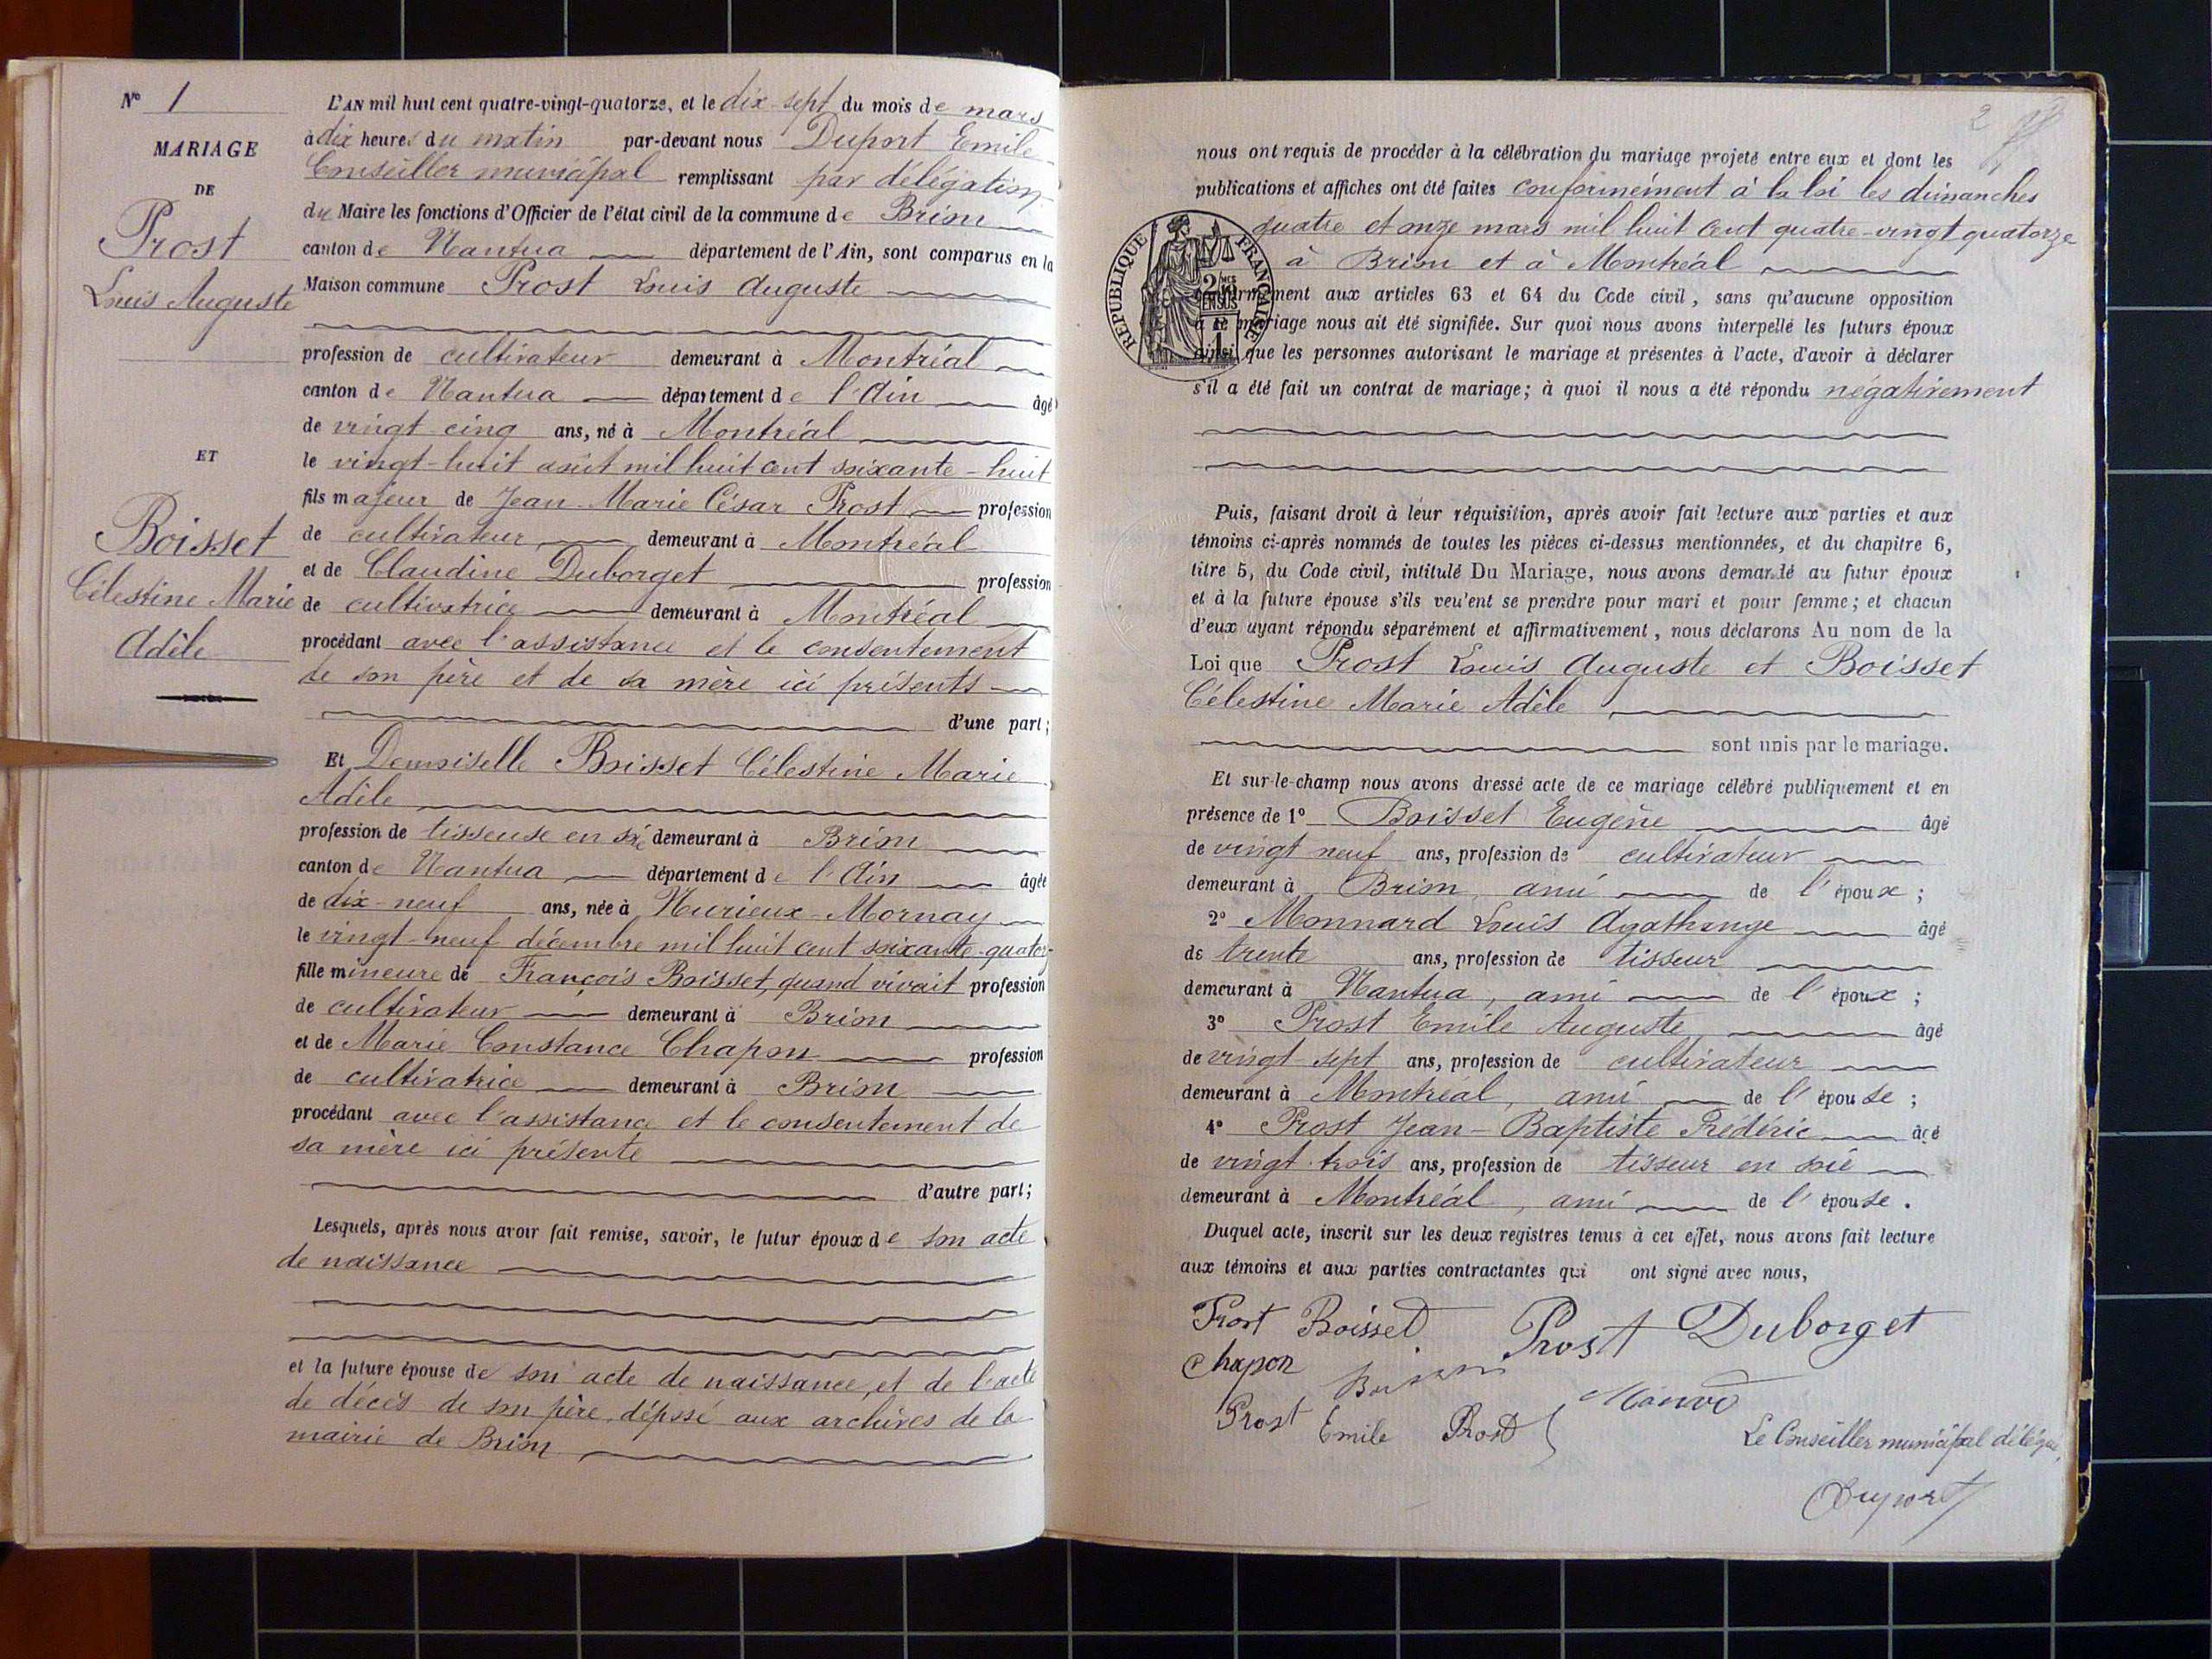 N° 1
MARIAGE
DE
Prost
Louis Auguste
ET
Boisset
Célestine Marie
Adèle
L'AN mil huit cent quatre-vingt-quatorze, et le dix-sept du mois de mars
à dix heures du matin par-devant nous Duport Emile
Conseiller municipal remplissant par délégation
du Maire les fonctions d'Officier de l'état civil de la commune de Brion
canton de Nantua département de l'Ain, sont comparus en la
Maison commune Prost Louis Auguste
profession de cultivateur demeurant à Montréal
canton de Nantua département de l'Ain âgé
de vingt cinq ans, né à Montréal
le vingt-huit août mil huit cent soixante-huit
fils majeur de Jean-Marie César Prost profession
de cultivateur demeurant à Montréal
et de Claudine Duborget profession
de cultivatrice demeurant à Montréal
procédant avec l'assistance et le consentement
de son père et de sa mère ici présents
d'une part;
Et Demoiselle Boisset Célestine Marie
Adèle
profession de tisseuse en soie demeurant à Brion
canton de Nantua département de l'Ain âgée
de dix-neuf ans, née à Nurieux-Mornay
le vingt-neuf décembre mil huit cent soixante-quator-
fille mineure de François Boisset, quand vivait profession
de cultivateur demeurant à Brion
et de Marie Constance Chapon profession
de cultivatrice demeurant à Brion
procédant avec l'assistance et le consentement de
sa mère ici présente
d'autre part;
Lesquels, après nous avoir fait remise, savoir, le futur époux de son acte
de naissance
et la future épouse de son acte de naissance, et de l'acte
de décès de son père, déposé aux archives de la
mairie de Brion
2
nous ont requis de procéder à la célébration du mariage projeté entre eux et dont les
publications et affiches ont été faites conformément à la loi les dimanches
quatre et onze mars mil huit cent quatre-vingt quatorze
à Brion et à Montréal
RÉPUBLIQUE FRANÇAISE
conformément aux articles 63 et 64 du Code civil, sans qu'aucune opposition
à ce mariage nous ait été signifiée. Sur quoi nous avons interpellé les futurs époux
ainsi que les personnes autorisant le mariage et présentes à l'acte, d'avoir à déclarer
s'il a été fait un contrat de mariage; à quoi il nous a été répondu négativement
Puis, faisant droit à leur réquisition, après avoir fait lecture aux parties et aux
témoins ci-après nommés de toutes les pièces ci-dessus mentionnées, et du chapitre 6,
titre 5, du Code civil, intitulé Du Mariage, nous avons demandé au futur époux
et à la future épouse s'ils veulent se prendre pour mari et pour femme; et chacun
d'eux ayant répondu séparément et affirmativement, nous déclarons Au nom de la
Loi que Prost Louis Auguste et Boisset
Célestine Marie Adèle
sont unis par le mariage.
Et sur-le-champ nous avons dressé acte de ce mariage célébré publiquement et en
présence de 1° Boisset Eugène âgé
de vingt neuf ans, profession de cultivateur
demeurant à Brion, ami de l'époux;
2° Monnard Louis Agathange âgé
de trente ans, profession de tisseur
demeurant à Nantua, ami de l'époux;
3° Prost Emile Auguste âgé
de vingt-sept ans, profession de cultivateur
demeurant à Montréal, ami de l'épouse;
4° Prost Jean-Baptiste Frédéric âgé
de vingt-trois ans, profession de tisseur en soie
demeurant à Montréal, ami de l'épouse.
Duquel acte, inscrit sur les deux registres tenus à cet effet, nous avons fait lecture
aux témoins et aux parties contractantes qui ont signé avec nous,
Prost Boisset Prost Duborget
Chapon
Prost Emile Prost
Le Conseiller municipal délégué,
Duport